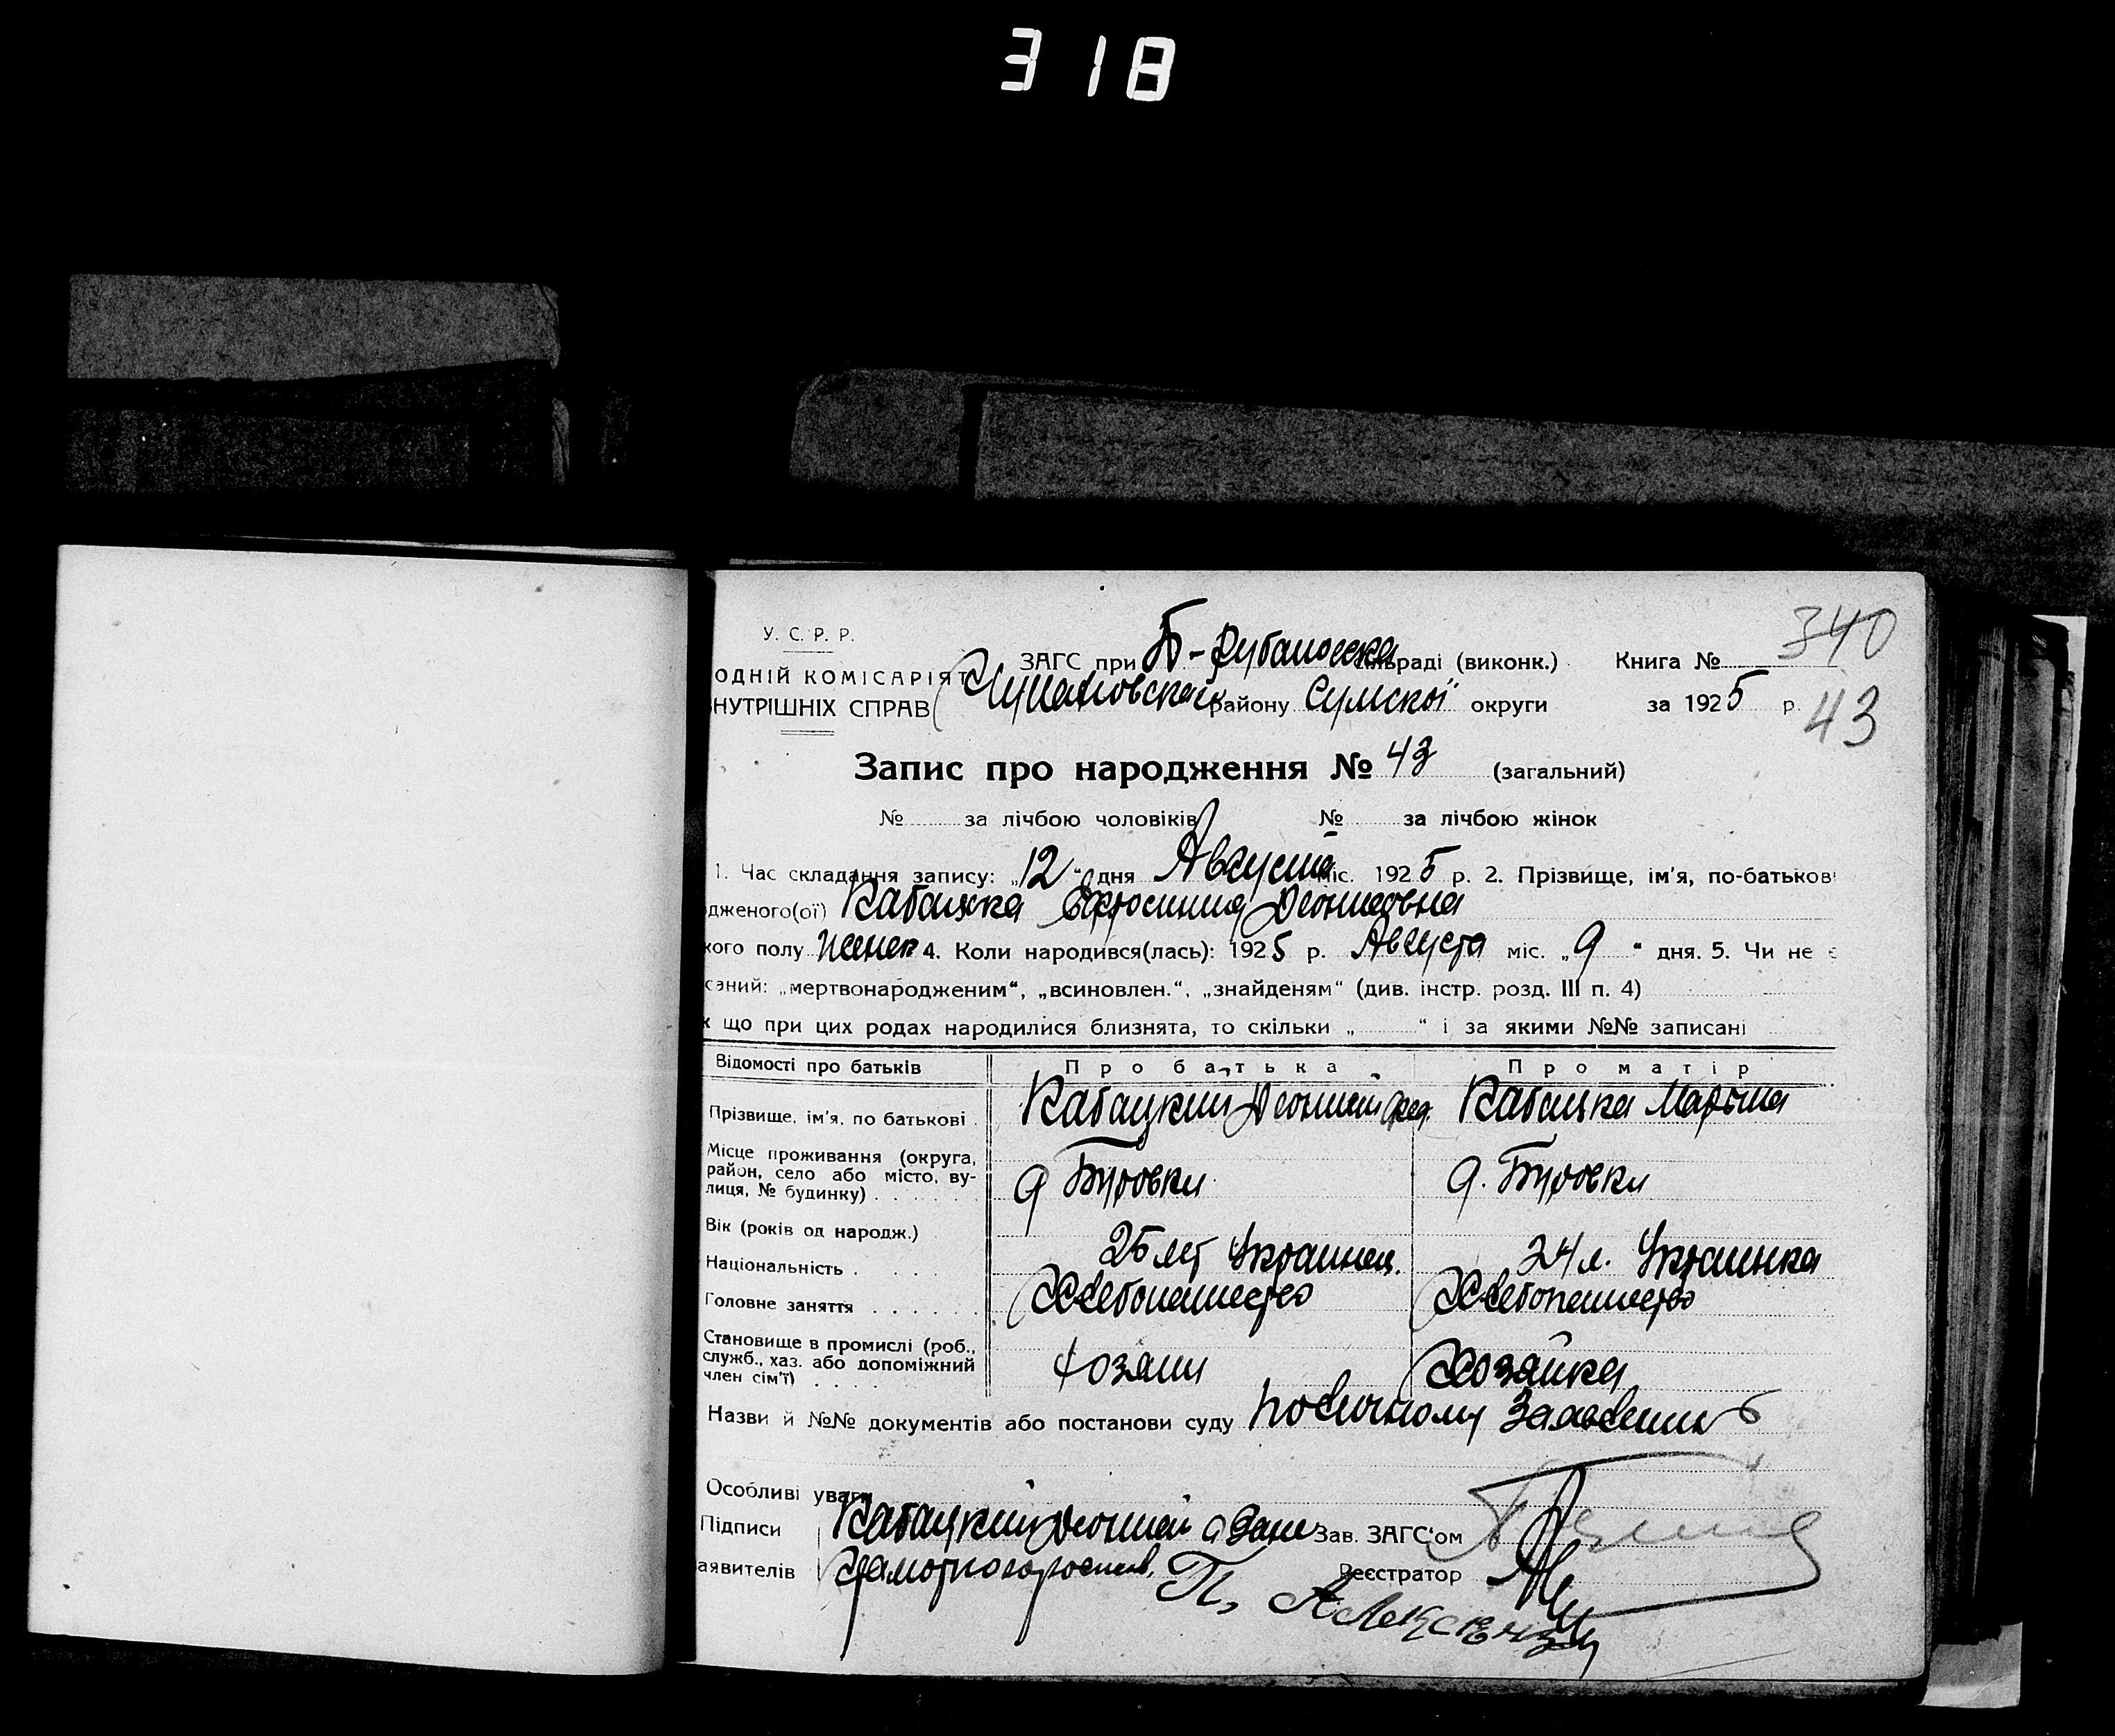 318
У. С. Р. Р.
ОДНІЙ КОМІСАРІЯТ
НУТРІШНІХ СПРАВ
ЗАГС при Б-Рубановска раді (виконк.) Книга № 340
району Сумскоі округи за 1925 р. 43
Запис про народження № 43 (загальний)
№ за лічбою чоловіків № за лічбою жінок
1. Час складання запису: „12“ дня Августа міс. 1925 р. 2. Прізвище, ім'я, по-батькові
дженого(ої) Кабацка Ефросиния Леонтиовна
кого полу женск 4. Коли народився(лась): 1925 р. Августа міс. „9“ дня. 5. Чи не є
саний: „мертвонародженим“, „всиновлен.“, „знайденям“ (див. інстр. розд. III п. 4)
к що при цих родах народилися близнята, то скільки „ “ і за якими №№ записані
Відомості про батьків Про батька Про матір
Прізвище, ім'я, по батькові Кабацкий Леонтий Кабацка Марьия
Місце проживання (округа,
район, село або місто, ву-
лиця, № будинку) д Буровки д. Буровки
Вік (років од народж.) 25 лет 24 л.
Національність Украинец. Украинка
Головне заняття Хлебопашество Хлебопашество
Становище в промислі (роб.,
служб., хаз. або допоміжний
член сім'ї) хозяин Хозяйка
Назви й №№ документів або постанови суду По личному Заявлению
Особливі уваги
Підписи Кабацкий Леонтий а За не Зав. ЗАГС'ом
аявителів грамотного росписал. Реєстратор
П. А.